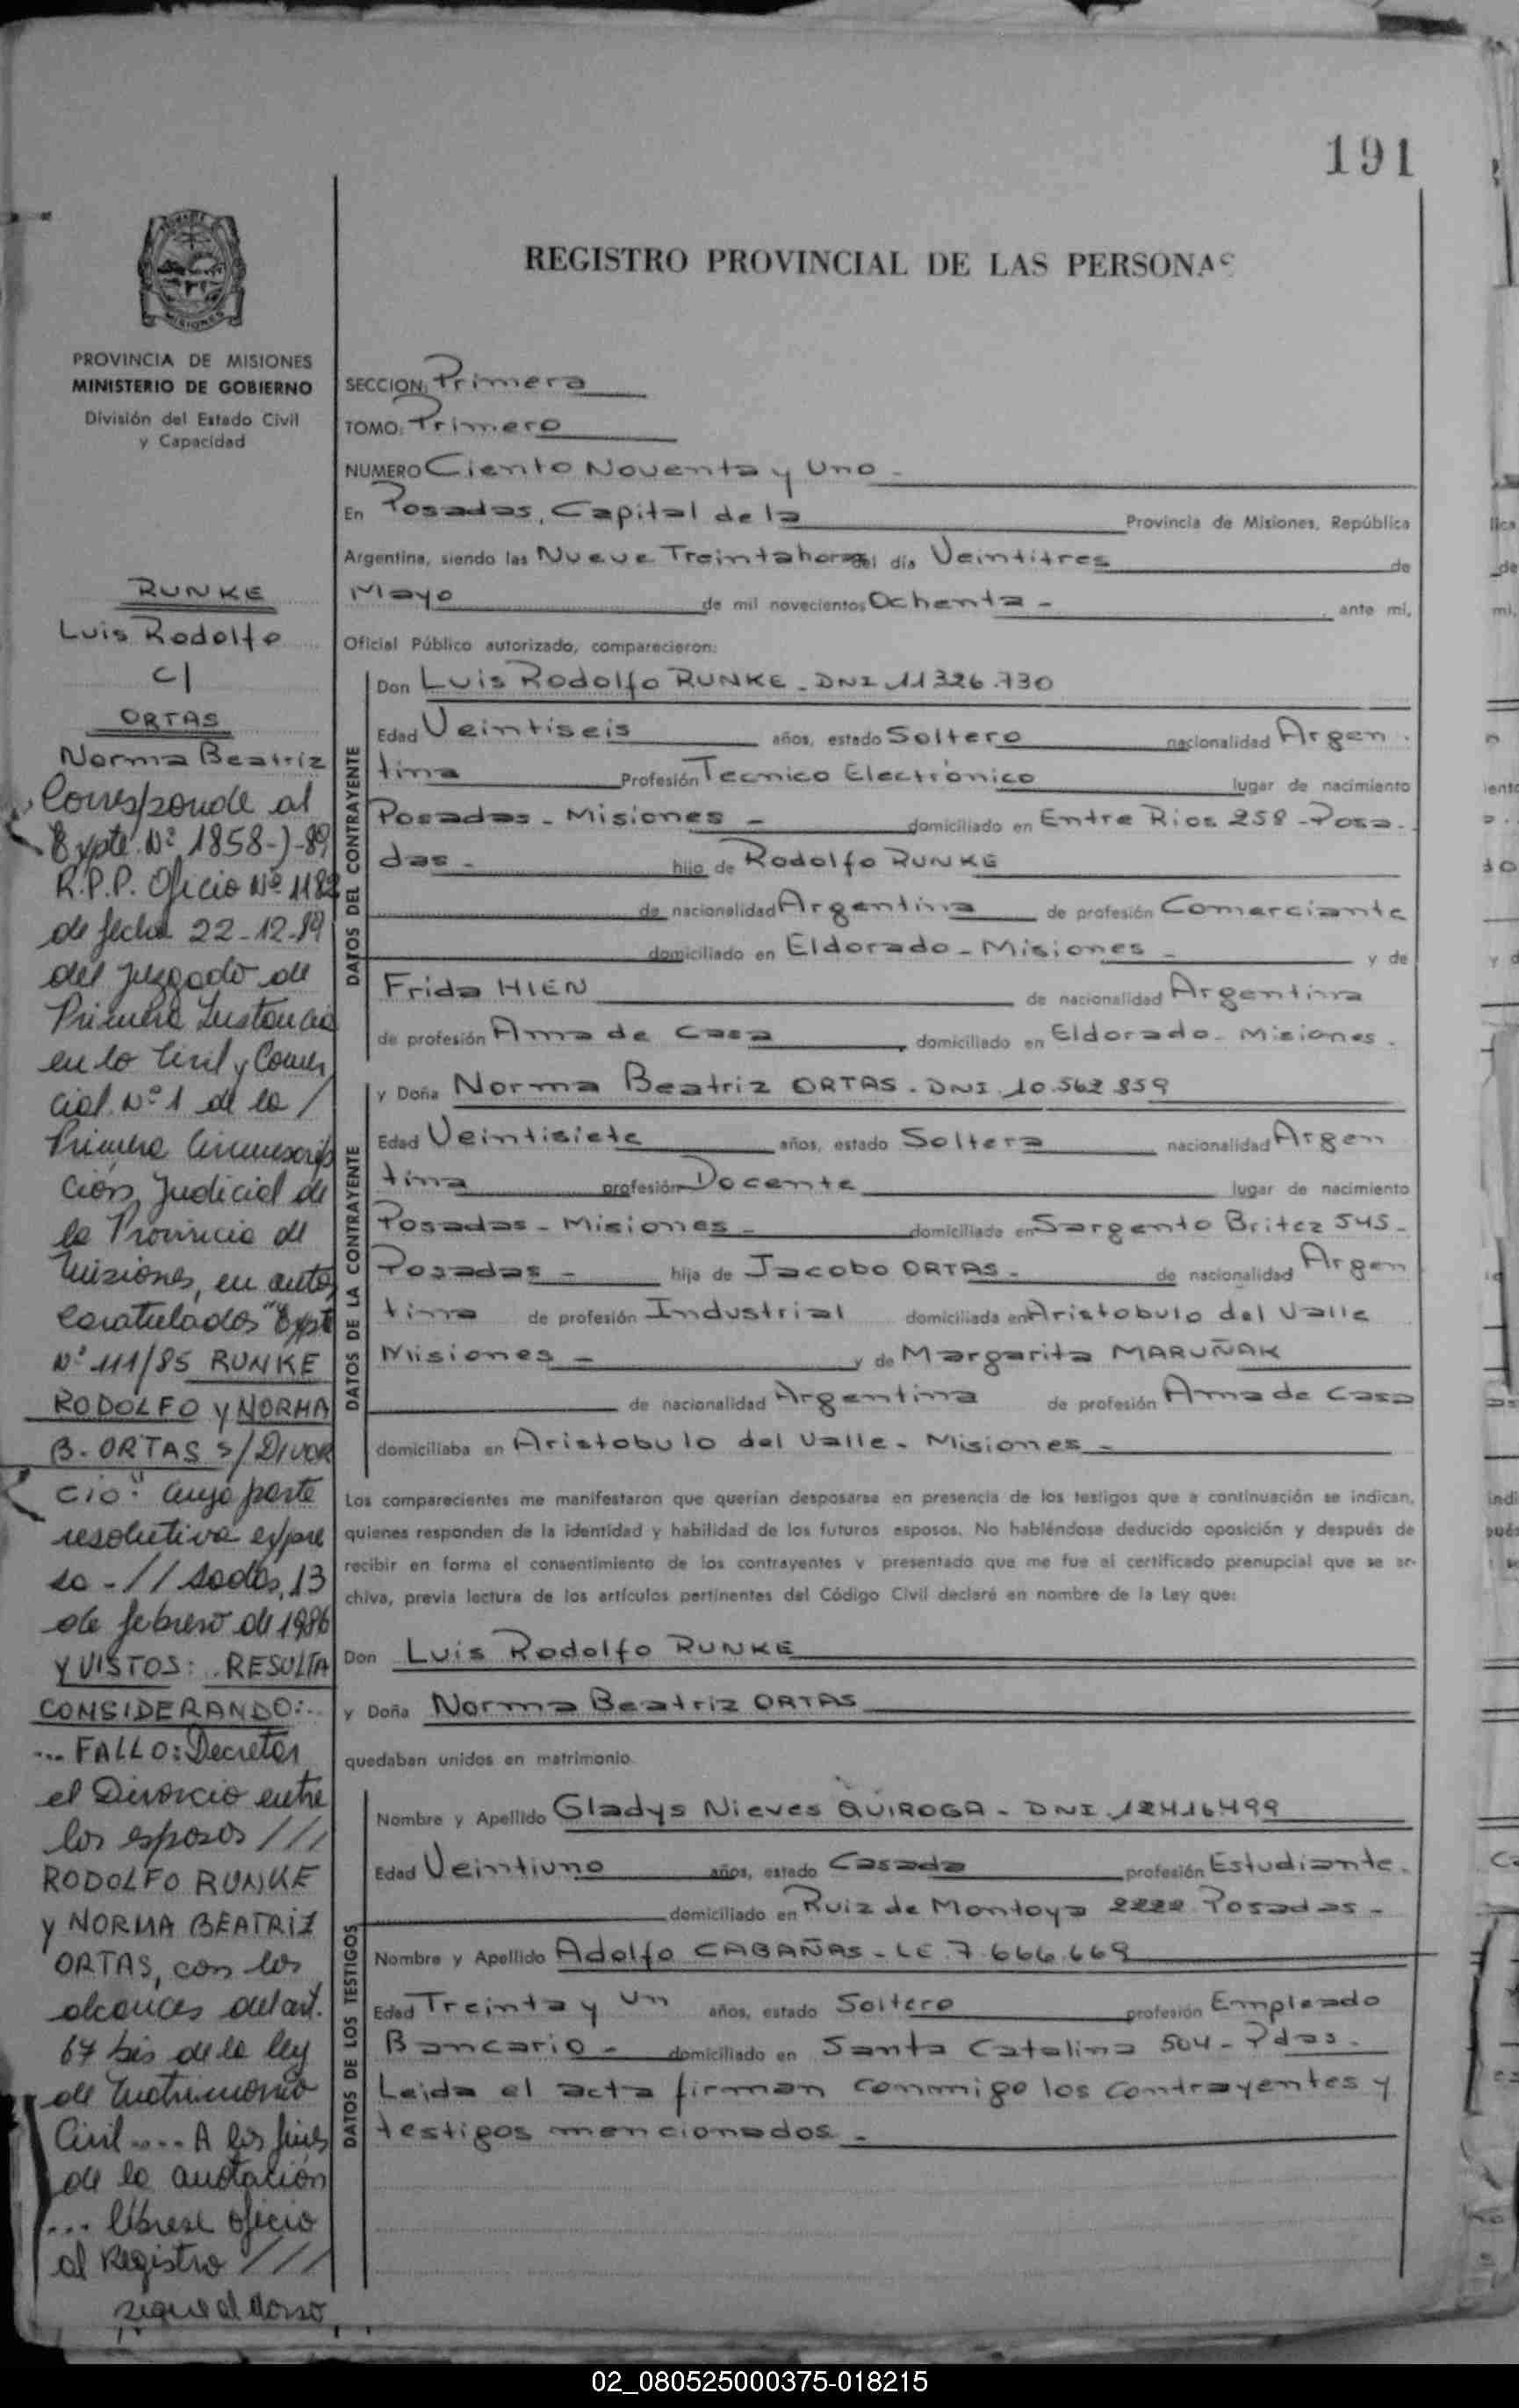 191
REGISTRO PROVINCIAL DE LAS PERSONAS
MISIONES
PROVINCIA DE MISIONES
MINISTERIO DE GOBIERNO
División del Estado Civil
y Capacidad
RUNKE
Luis Rodolfo
c/
ORTAS
Norma Beatriz
Corresponde al
Expte. Nº 1858-J-89
R.P.P. Oficio Nº 1182
de fecha 22-12-89
del Juzgado de
Primera Instancia
en lo Civil y Comer
cial Nº 1 de la /
Primera Circunscrip
ción Judicial de
la Provincia de
Misiones, en autos
Caratulados "Expte
Nº 111/85 RUNKE
RODOLFO y NORMA
B. ORTAS s/ DIVOR
CIO" cuya parte
resolutiva expre
sa - // sadas, 13
de febrero de 1986
Y VISTOS: . RESULTA
CONSIDERANDO:..
... FALLO: Decretar
el Divorcio entre
los esposos ///
RODOLFO RUNKE
y NORMA BEATRIZ
ORTAS, con los
alcances del art.
67 bis de la ley
de Matrimonio
Civil .... A los fines
de la anotación
... líbrese oficio
al Registro ///
sigue al dorso
SECCION: Primera
TOMO: Primero
NUMERO Ciento Noventa y Uno -
En Posadas, Capital de la Provincia de Misiones, República
Argentina, siendo las Nueve Treinta horas del día Veintitres de
Mayo de mil novecientos Ochenta - , ante mí,
Oficial Público autorizado, comparecieron:
DATOS DEL CONTRAYENTE
Don Luis Rodolfo RUNKE - DNI 11326.730
Edad Veintiseis años, estado Soltero nacionalidad Argen
tina Profesión Tecnico Electrónico lugar de nacimiento
Posadas - Misiones - domiciliado en Entre Rios 258 - Posa-
das - hijo de Rodolfo RUNKE
de nacionalidad Argentina de profesión Comerciante
domiciliado en Eldorado - Misiones - y de
Frida HIEN de nacionalidad Argentina
de profesión Ama de Casa , domiciliado en Eldorado - Misiones -
DATOS DE LA CONTRAYENTE
y Doña Norma Beatriz ORTAS - DNI. 10.562 859
Edad Veintisiete años, estado Soltera nacionalidad Argen
tina profesión Docente lugar de nacimiento
Posadas - Misiones - domiciliada en Sargento Britez 545 -
Posadas - hija de Jacobo ORTAS - de nacionalidad Argen
tina de profesión Industrial domiciliada en Aristobulo del Valle
Misiones - y de Margarita MARUÑAK
de nacionalidad Argentina de profesión Ama de Casa
domiciliaba en Aristobulo del Valle - Misiones -
Los comparecientes me manifestaron que querían desposarse en presencia de los testigos que a continuación se indican,
quienes responden de la identidad y habilidad de los futuros esposos. No habiéndose deducido oposición y después de
recibir en forma el consentimiento de los contrayentes y presentado que me fue el certificado prenupcial que se ar-
chiva, previa lectura de los artículos pertinentes del Código Civil declaré en nombre de la Ley que:
Don Luis Rodolfo RUNKE
y Doña Norma Beatriz ORTAS
quedaban unidos en matrimonio
DATOS DE LOS TESTIGOS
Nombre y Apellido Gladys Nieves QUIROGA - DNI. 12416499
Edad Veintiuno años, estado Casada profesión Estudiante -
domiciliado en Ruiz de Montoya 2222 Posadas -
Nombre y Apellido Adolfo CABAÑAS - LE. 7.666.669
Edad Treinta y Un años, estado Soltero profesión Empleado
Bancario - domiciliado en Santa Catalina 504 - Pdas -
Leida el acta firman conmigo los contrayentes y
testigos mencionados -
02_080525000375-018215